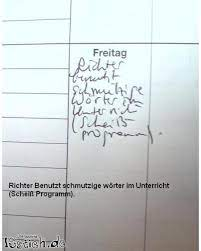 Freitag
Richter
benutzt
schmutzige
Wörter im
Unterricht
(Scheiß
programm).
Richter Benutzt schmutzige wörter im Unterricht
(Scheiß Programm).